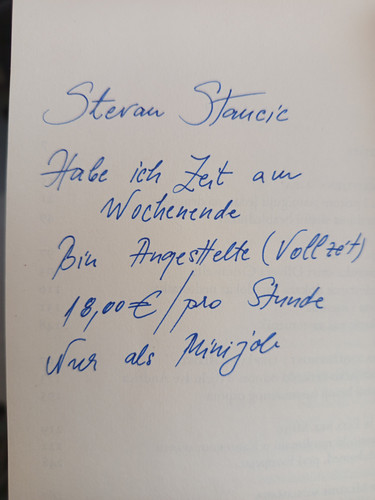 Stevan Stancic
Habe ich Zeit am
Wochenende
Bin Angesttelte (Vollzeit)
18,00€/pro Stunde
Nur als Minijob